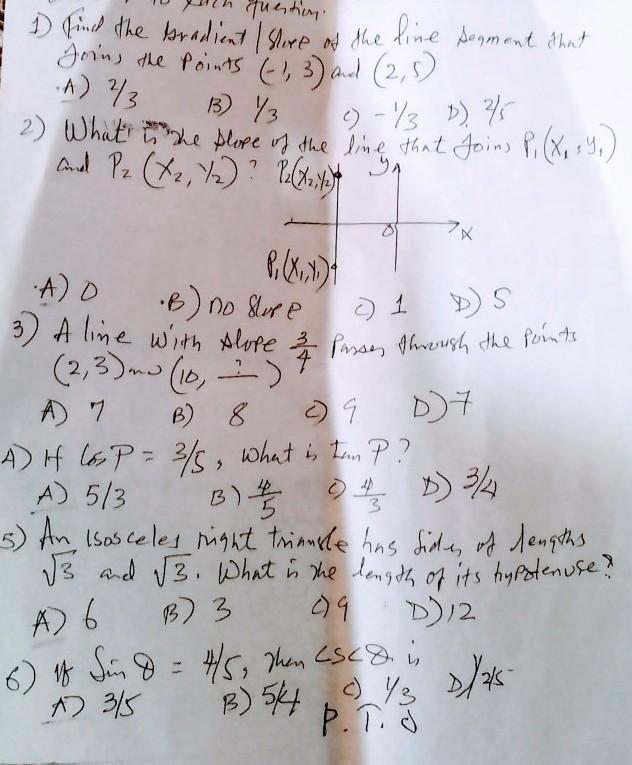 Each question.
1) Find the Gradient / Slope of the line segment that
Joins the Points (-1, 3) and (2, 5)
A) 2/3 B) 1/3 C) -1/3 D) 2/5
2) What is the slope of the line that Joins P₁(X₁, Y₁)
and P₂ (X₂, Y₂)? P₂(X₂, Y₂) y
0 X
P₁(X₁, Y₁)
A) 0 B) no Slope C) 1 D) 5
3) A line with slope 3/4 Passes through the Points
(2, 3) and (10, ?)
A) 7 B) 8 C) 9 D) 7
4) If Cos P = 3/5, What is tan P?
A) 5/3 B) 4/5 C) 4/3 D) 3/4
5) An Isosceles right triangle has Sides of lengths
√3 and √3. What is the length of its hypotenuse?
A) 6 B) 3 C) 9 D) 12
6) If Sin θ = 4/5, then CSC θ is
A) 3/5 B) 5/4 C) 1/3 D) 2/5
P.T.O